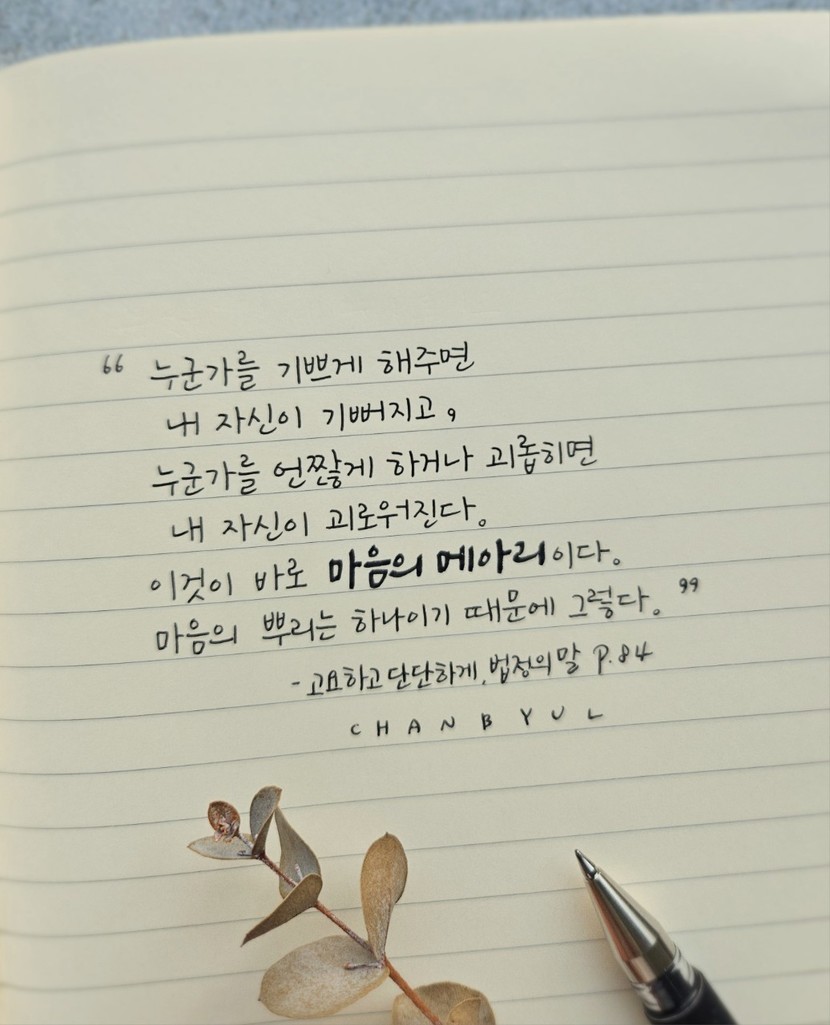 “ 누군가를 기쁘게 해주면
내 자신이 기뻐지고,
누군가를 언짢게 하거나 괴롭히면
내 자신이 괴로워진다.
이것이 바로 마음의 메아리이다.
마음의 뿌리는 하나이기 때문에 그렇다. ”
- 고요하고 단단하게, 법정의 말 P.84
CHANBYUL